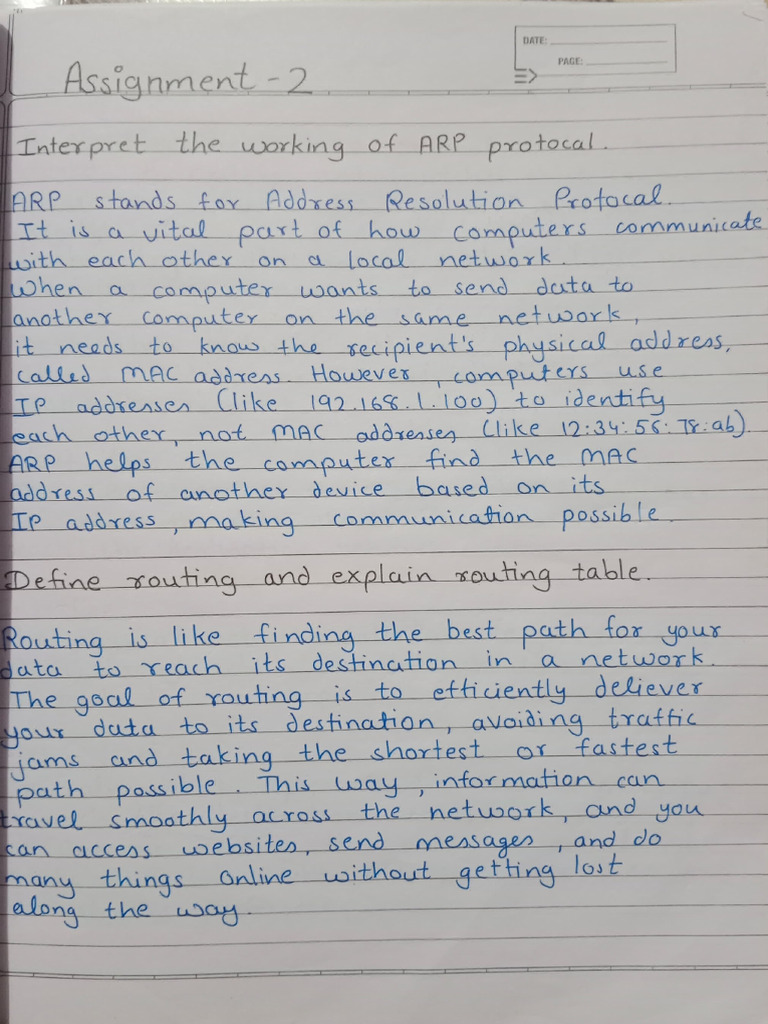 DATE:
PAGE:
Assignment - 2
Interpret the working of ARP protocal.
ARP stands for Address Resolution Protocal.
It is a vital part of how computers communicate
with each other on a local network.
When a computer wants to send data to
another computer on the same network,
it needs to know the recipient's physical address,
called MAC address. However, computers use
IP addresses (like 192.168.1.100) to identify
each other, not MAC addresses (like 12:34:56:78:ab).
ARP helps the computer find the MAC
address of another device based on its
IP address, making communication possible.
Define routing and explain routing table.
Routing is like finding the best path for your
data to reach its destination in a network.
The goal of routing is to efficiently deliever
your data to its destination, avoiding traffic
jams and taking the shortest or fastest
path possible. This way, information can
travel smoothly across the network, and you
can access websites, send messages, and do
many things online without getting lost
along the way.